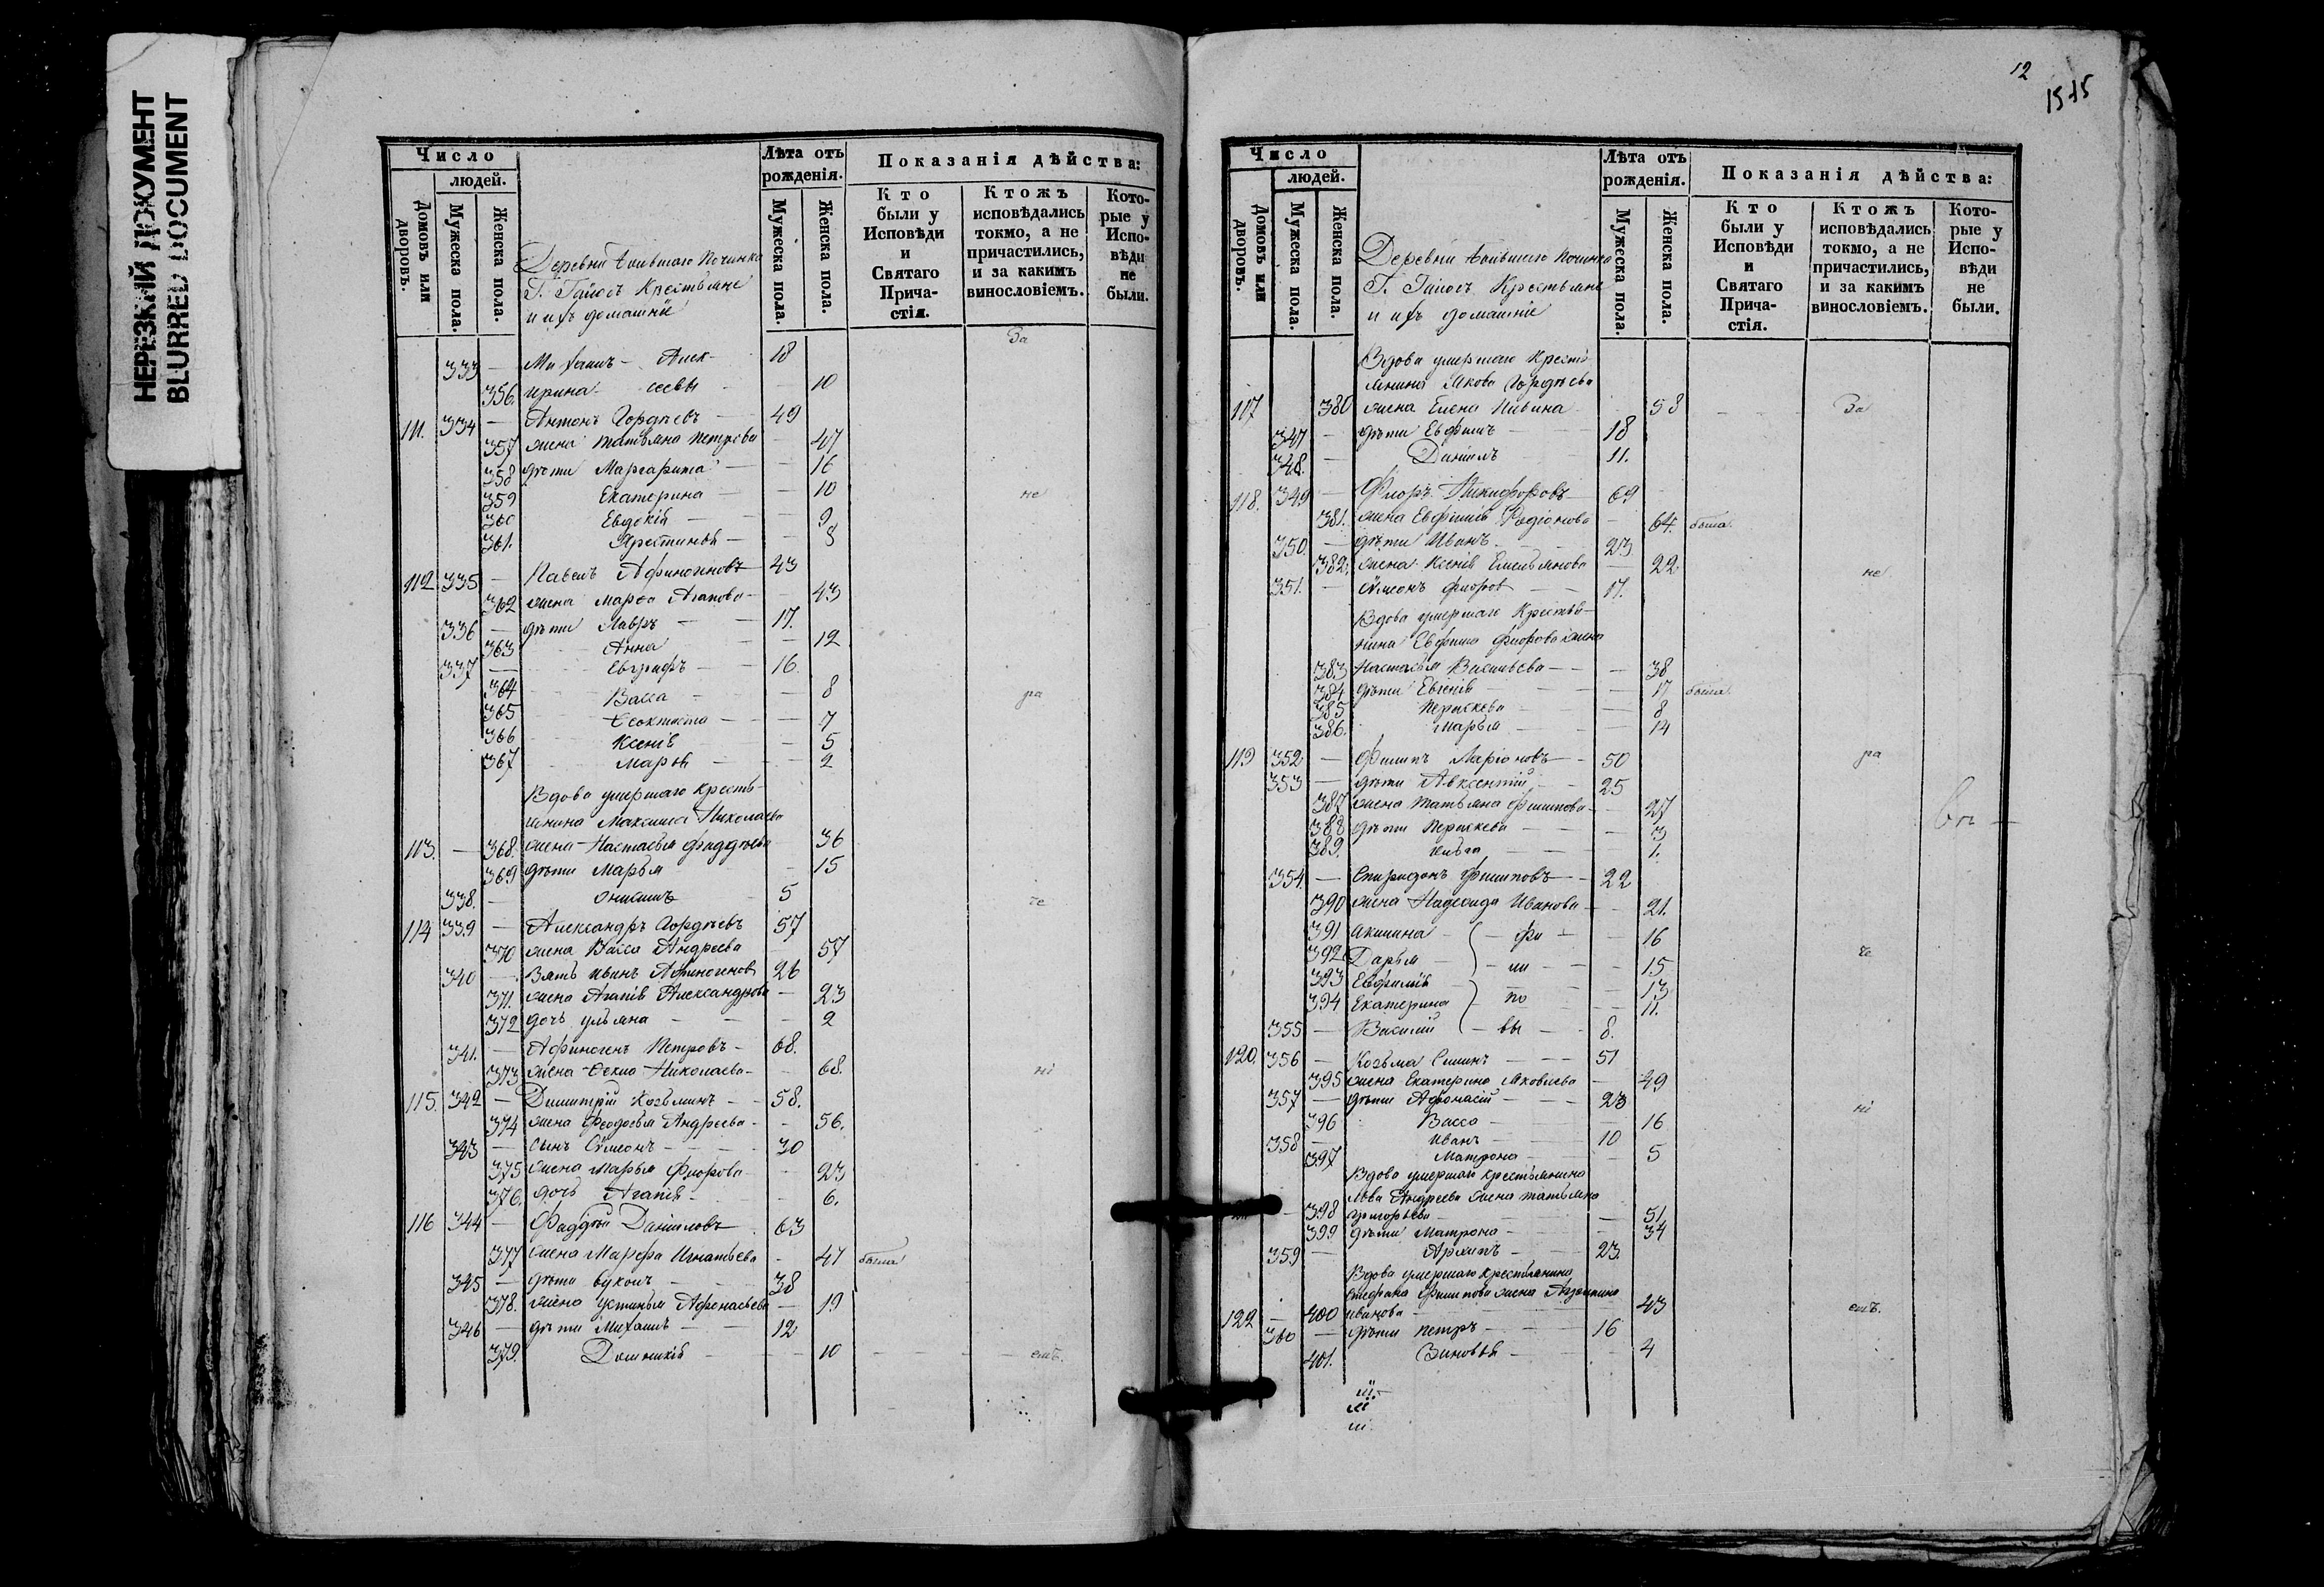 НЕРЕЗКИЙ ДОКУМЕНТ
BLURRED DOCUMENT
Число
людей.
Домовъ или дворовъ.
Мужеска пола.
Женска пола.
Деревни Починка
Г. Крестьяне
и ихъ домашніе
Лѣта отъ рожденія.
Мужеска пола.
Женска пола.
Показанія дѣйства:
Кто были у Исповѣди и Святаго Прича-стія.
Ктожъ исповѣдались токмо, а не причастились, и за какимъ винословіемъ.
Кото-рые у Испо-вѣди не были.
За
333 — Михаилъ — Алек- 18
356. Ирина — сѣевы 10
111. 334 — Антонъ Гордѣевъ — 49
357 жена Татьяна Петрова — 47
358 дѣти Маргарита — 16
359 Екатерина — 10 не
360 Евдокія — 9
361. Христинья — 8
112 335 — Павелъ Афиногеновъ 43
362 жена Марѳа Агапова — 43
336 — дѣти Лавръ — 17.
363 Анна 12
337 — Евграфъ — 16.
364 Васса — 8 ра
365 Ѳеоктиста — 7
366 Ксенія — 5
367 Марѳа — 2
Вдова умершаго кресть-
янина Максима Николаева
113. — 368. жена Настасья Фаддѣева 36
369 дѣти Марья — 15
338. — Онисимъ 5 че
114 339 — Александръ Гордѣевъ 57
370 жена Васса Андреева — 57
340 — Зять Иванъ Афиногеновъ 26
371. жена Агапія Александрова — 23
372 дочь Ульяна — 2
341. — Афиногенъ Петровъ — 68.
373 жена Ѳекла Николаева — 68. ні
115. 342 — Димитрій Козьминъ — 58.
374 жена Ѳеодосья Андреева — 56.
343 — сынъ Сѵмеонъ — 30
375 жена Марья Флорова — 23
376. дочь Агапія — 6.
116 344 — Фаддѣй Даніиловъ 63
377 жена Марѳа Игнатьева — 47 была
345 — дѣти Вуколъ — 38
378. жена Устинья Афонасьева — 19
346 — дѣти Михаилъ — 12
379. Домникія — 10 емъ.
12
15 15
Число
людей.
Домовъ или дворовъ.
Мужеска пола.
Женска пола.
Деревни Починка
Г. Крестьяне
и ихъ домашніе
Лѣта отъ рожденія.
Мужеска пола.
Женска пола.
Показанія дѣйства:
Кто были у Исповѣди и Святаго Прича-стія.
Ктожъ исповѣдались токмо, а не причастились, и за какимъ винословіемъ.
Кото-рые у Испо-вѣди не были.
Вдова умершаго кресть-
янина Якова Гордѣева
117 380 жена Елена 58 За
347 — дѣти Евфимъ — 18
348. — Даніилъ 11.
118. 349 — Флоръ Никифоровъ — 69
381. жена Евфимія Родіонова — 64. была
350. — дѣти Иванъ — 23
382. жена Ксенія Емельянова — 22 не
351. — Сѵмеонъ Флоровъ — 17.
Вдова умершаго крестья-
нина Евфима Флорова жена
383 Настасья Васильева — 38
384 дѣти Евгенія — 17 была
385 Параскева — 8
386. Марья — 14
119 352 — Филипъ Маріоновъ — 50 ра
353 — дѣти Авксентій — 25
387 жена Татьяна Филипова — 27
388 дѣти Параскева — 3
389. 1.
354. — Спиридонъ Филиповъ — 22
390 жена Надежда Иванова — 21.
391 Акилина — фи — 16
392 Дарья — ли — 15 че
393 Евфимія 13
394 Екатерина — по — 11.
355 — Василій — вы — 8.
120. 356 — Козьма 51
395 жена Екатерина Яковлева — 49
357 — дѣти Афонасій — 23 ні
396 Васса — 16
358 — Иванъ — 10
397 Матрона — 5
Вдова умершаго крестьянина
Льва Андреева жена Татьяна
398 Григорьева — 51
399 дѣти Матрона — 34
359 — Архипъ — 23
Вдова умершаго крестьянина
Филипова жена
122 — 400 Иванова — 43 емъ.
360 — дѣти Петръ — 16
401. Зиновья — 4